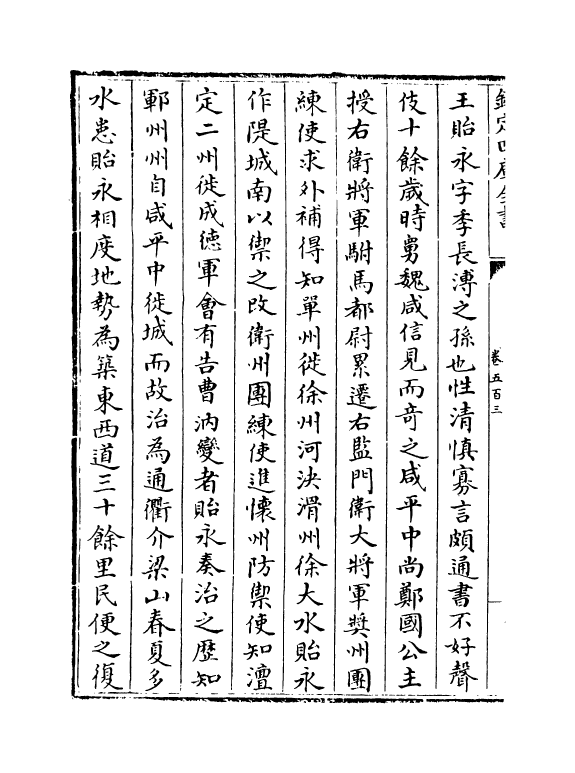 欽定四庫全書
卷五百三
王貽永字季長溥之孫也性清慎寡言頗通書不好聲
伎十餘歲時舅魏咸信見而竒之咸平中尚鄭國公主
授右衛將軍駙馬都尉累遷右監門衛大將軍奬州團
練使求外補得知單州徙徐州河決滑州徐大水貽永
作隄城南以禦之改衛州團練使進懷州防禦使知澶
定二州徙成徳軍會有告曹汭變者貽永奏治之歴知
鄆州州自咸平中徙城而故治為通衢介梁山春夏多
水患貽永相度地勢為築東西道三十餘里民便之復